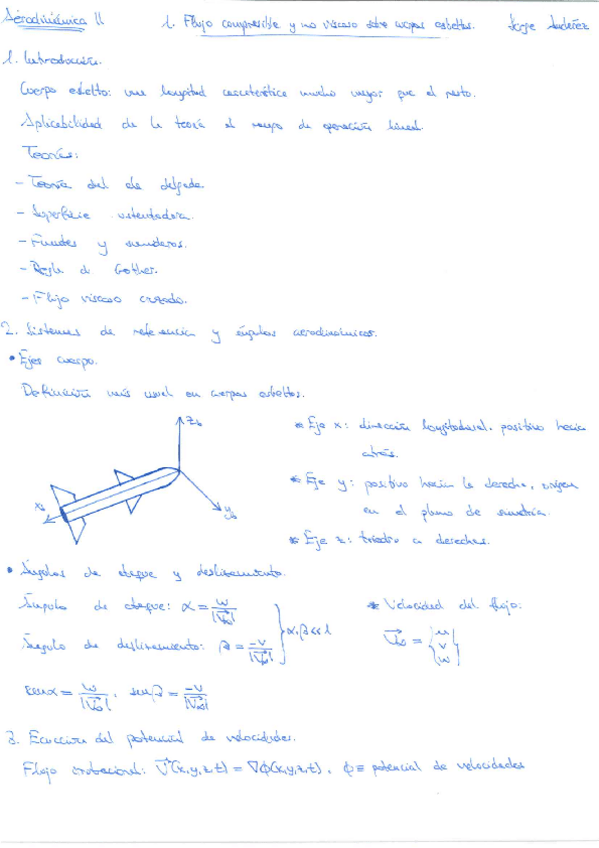 Aerodinámica II 1. Flujo compresible y no viscoso sobre cuerpos esbeltos. Jorge
1. Introducción.
Cuerpo esbelto: una longitud característica mucho mayor que el resto.
Aplicabilidad de la teoría al rango de operación lineal.
Teorías:
- Teoría del ala delgada
- Superficie sustentadora.
- Fuentes y sumideros.
- Regla de Gother.
- Flujo viscoso cruzado.
2. Sistemas de referencia y ángulos aerodinámicos.
• Ejes cuerpo.
Definición más usual en cuerpos esbeltos.
z_b
x_b
y_b
* Eje x: dirección longitudinal, positivo hacia
atrás.
* Eje y: positivo hacia la derecha, origen
en el plano de simetría.
* Eje z: triedro a derechas.
• Ángulos de ataque y deslizamiento.
Ángulo de ataque: α = w/|V∞|
Ángulo de deslizamiento: β = -v/|V∞|
} α, β << 1
* Velocidad del flujo:
U∞ = {u v w}
senα = w/|V∞|, senβ = -v/|V∞|
3. Ecuación del potencial de velocidades.
Flujo irrotacional: V(x,y,z,t) = ∇ϕ(x,y,z,t). ϕ ≡ potencial de velocidades